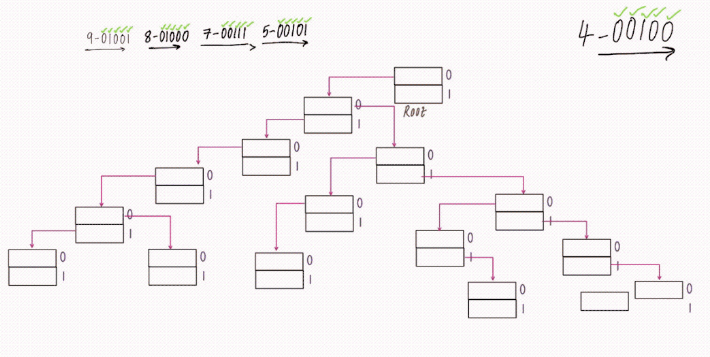 9-01001 8-01000 7-00111 5-00101 4-00100
0
1
Root
0
1
0
1
0
1
0
1
0
1
0
1
0
1
0
1
0
1
0
1
0
1
0
1
0
1
0
1